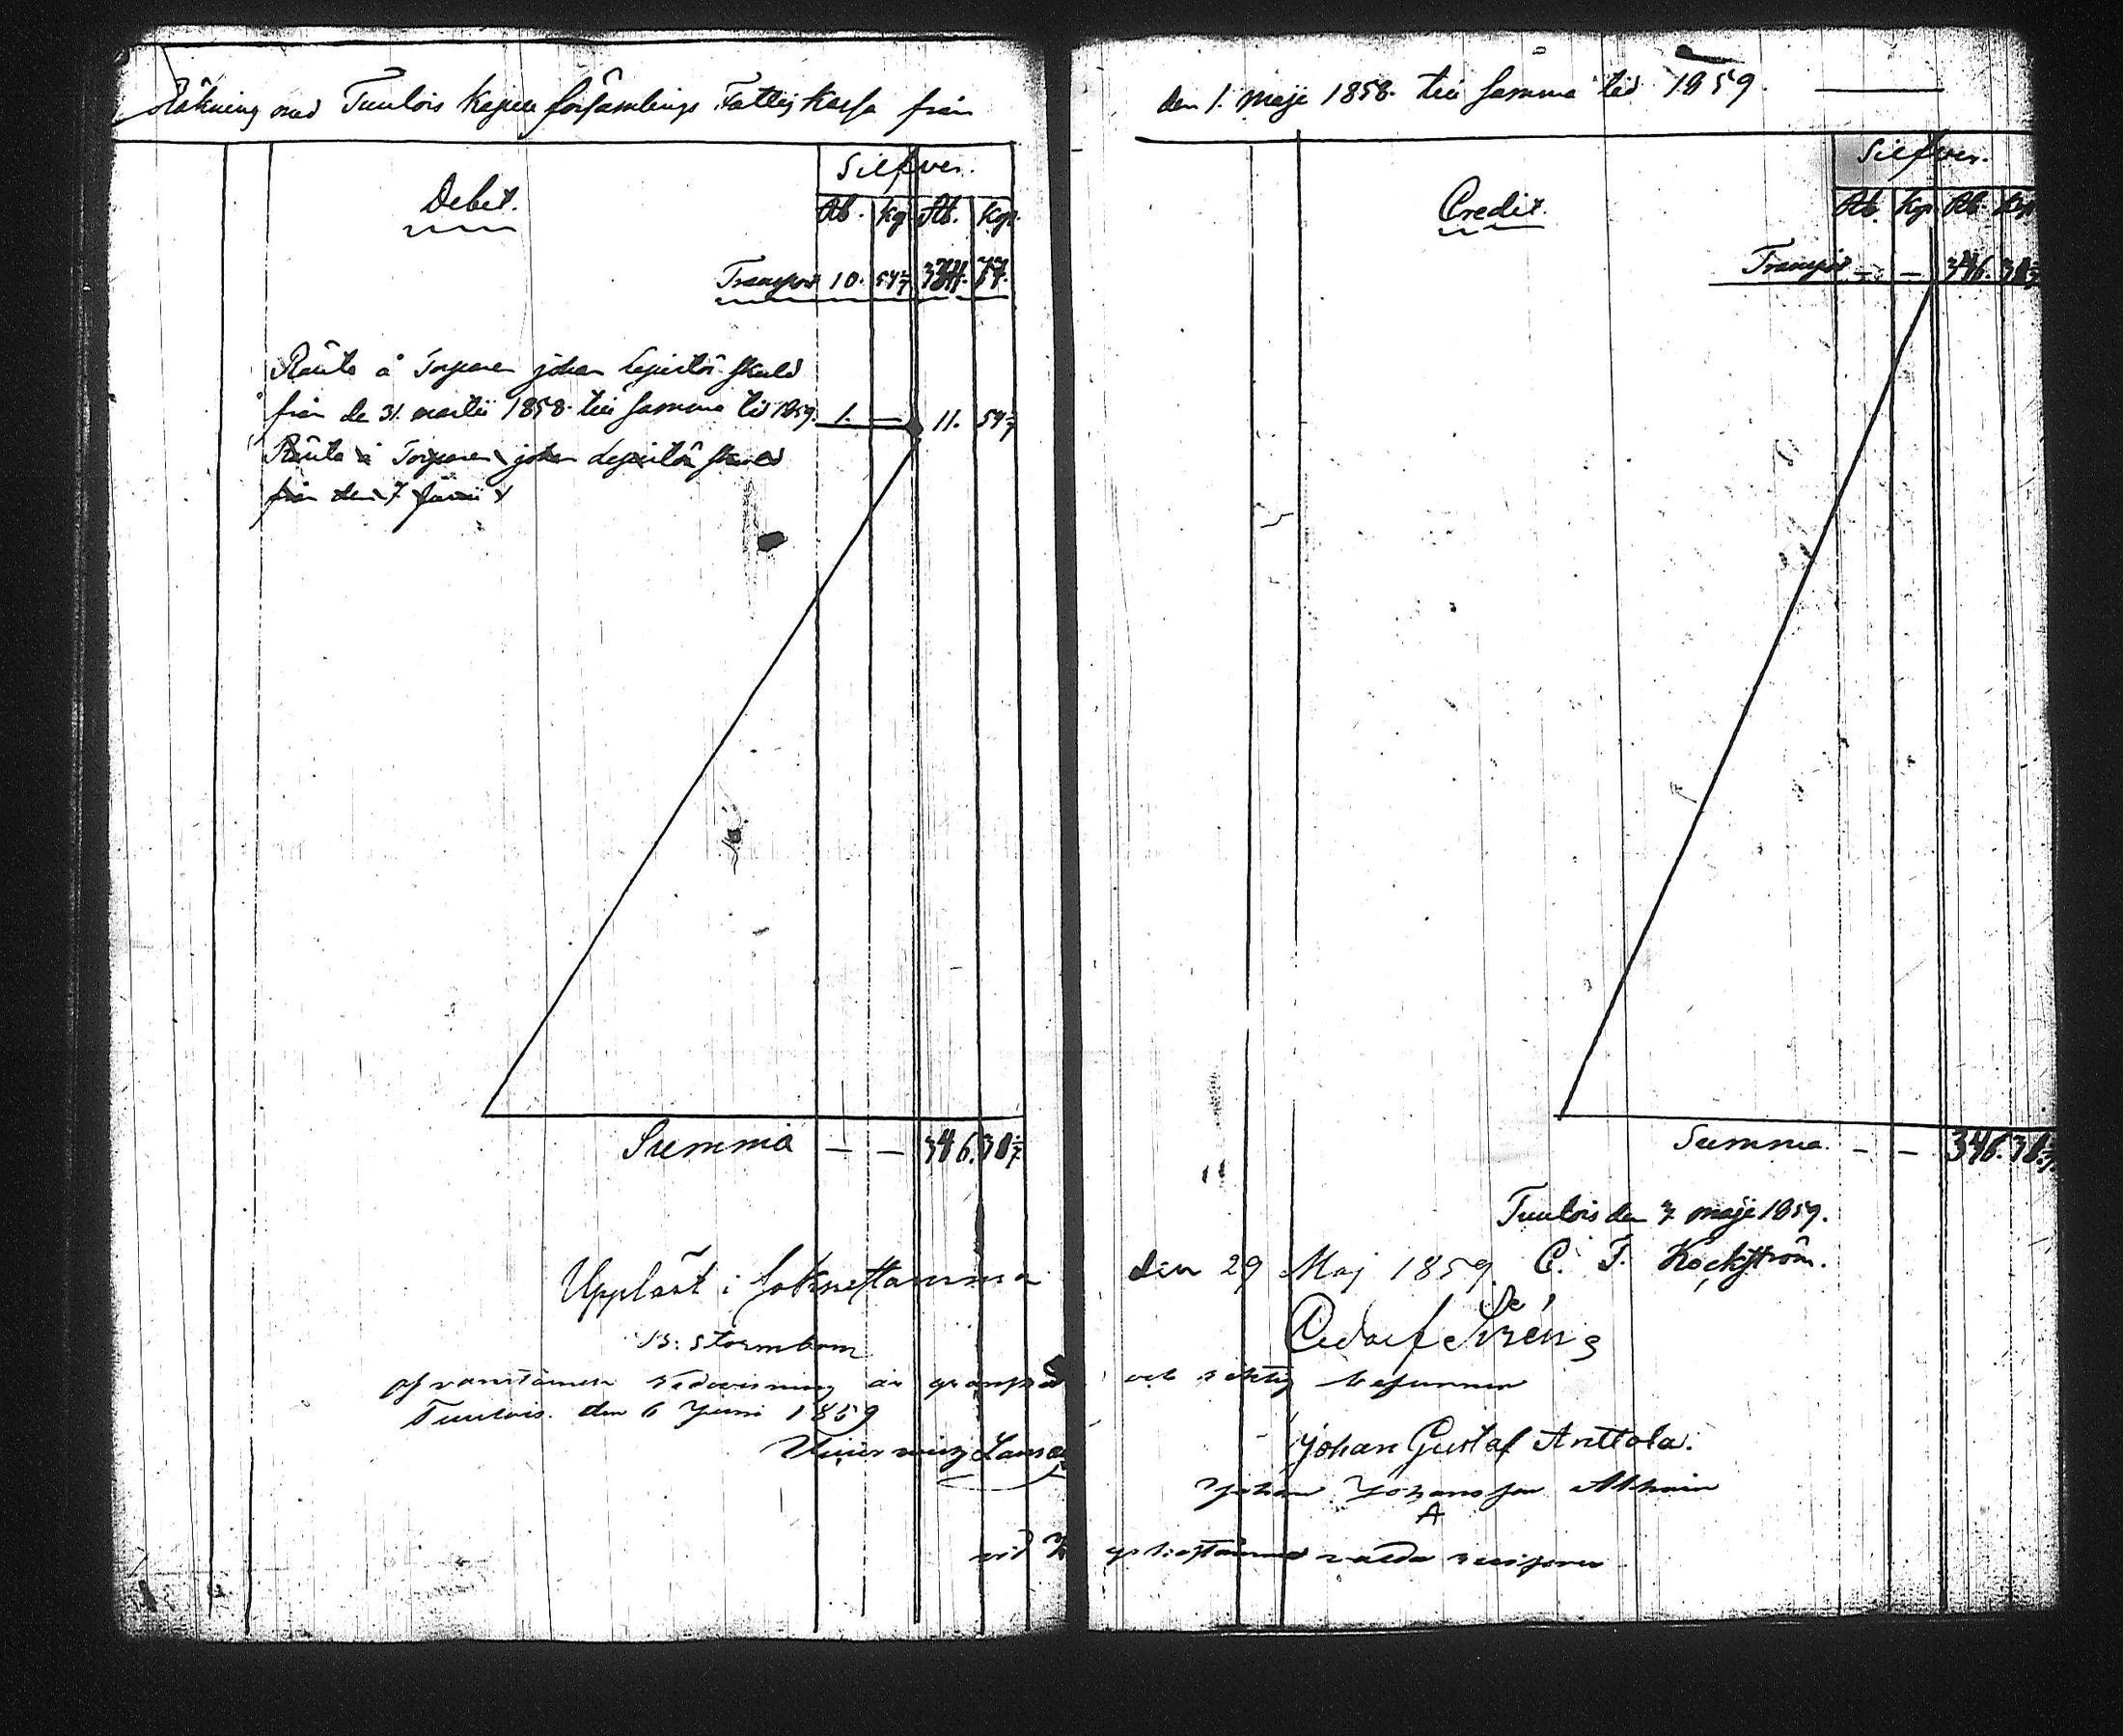 Räkning med Tuulois Kapell församlings Fattig Kassa från
den 1. Maje 1858. till samma tid 1859.
Debet.
Silfver.
Rb. Kp. Rb. Kop.
Transport 10. 54 2/7 334. 77.
Ränta å Torparen Johan Lepistös skuld
från de 31. martii 1858. till samma tid 1859. 1. — 11. 54 2/7
Ränta å Torparen Johan Lepistös skuld
från den 7 Junii
Summa — — 346. 31 2/7
Credit.
Silfver.
Rb. Kp. Rb. Kop.
Transport — — 346. 31 2/7
Summa — — 346. 31 2/7
Tuulois den 7 maje 1859.
C. F. Röckström.
Uppläst i Soknestämma den 29 Maj 1859.
B: Stormbom
ofvanstående redovisning är granskad och riktig befunnen
Tuulois den 6 Juni 1859
Johan Gustaf Anttola.
Johan Johansson
A
valda revisorer